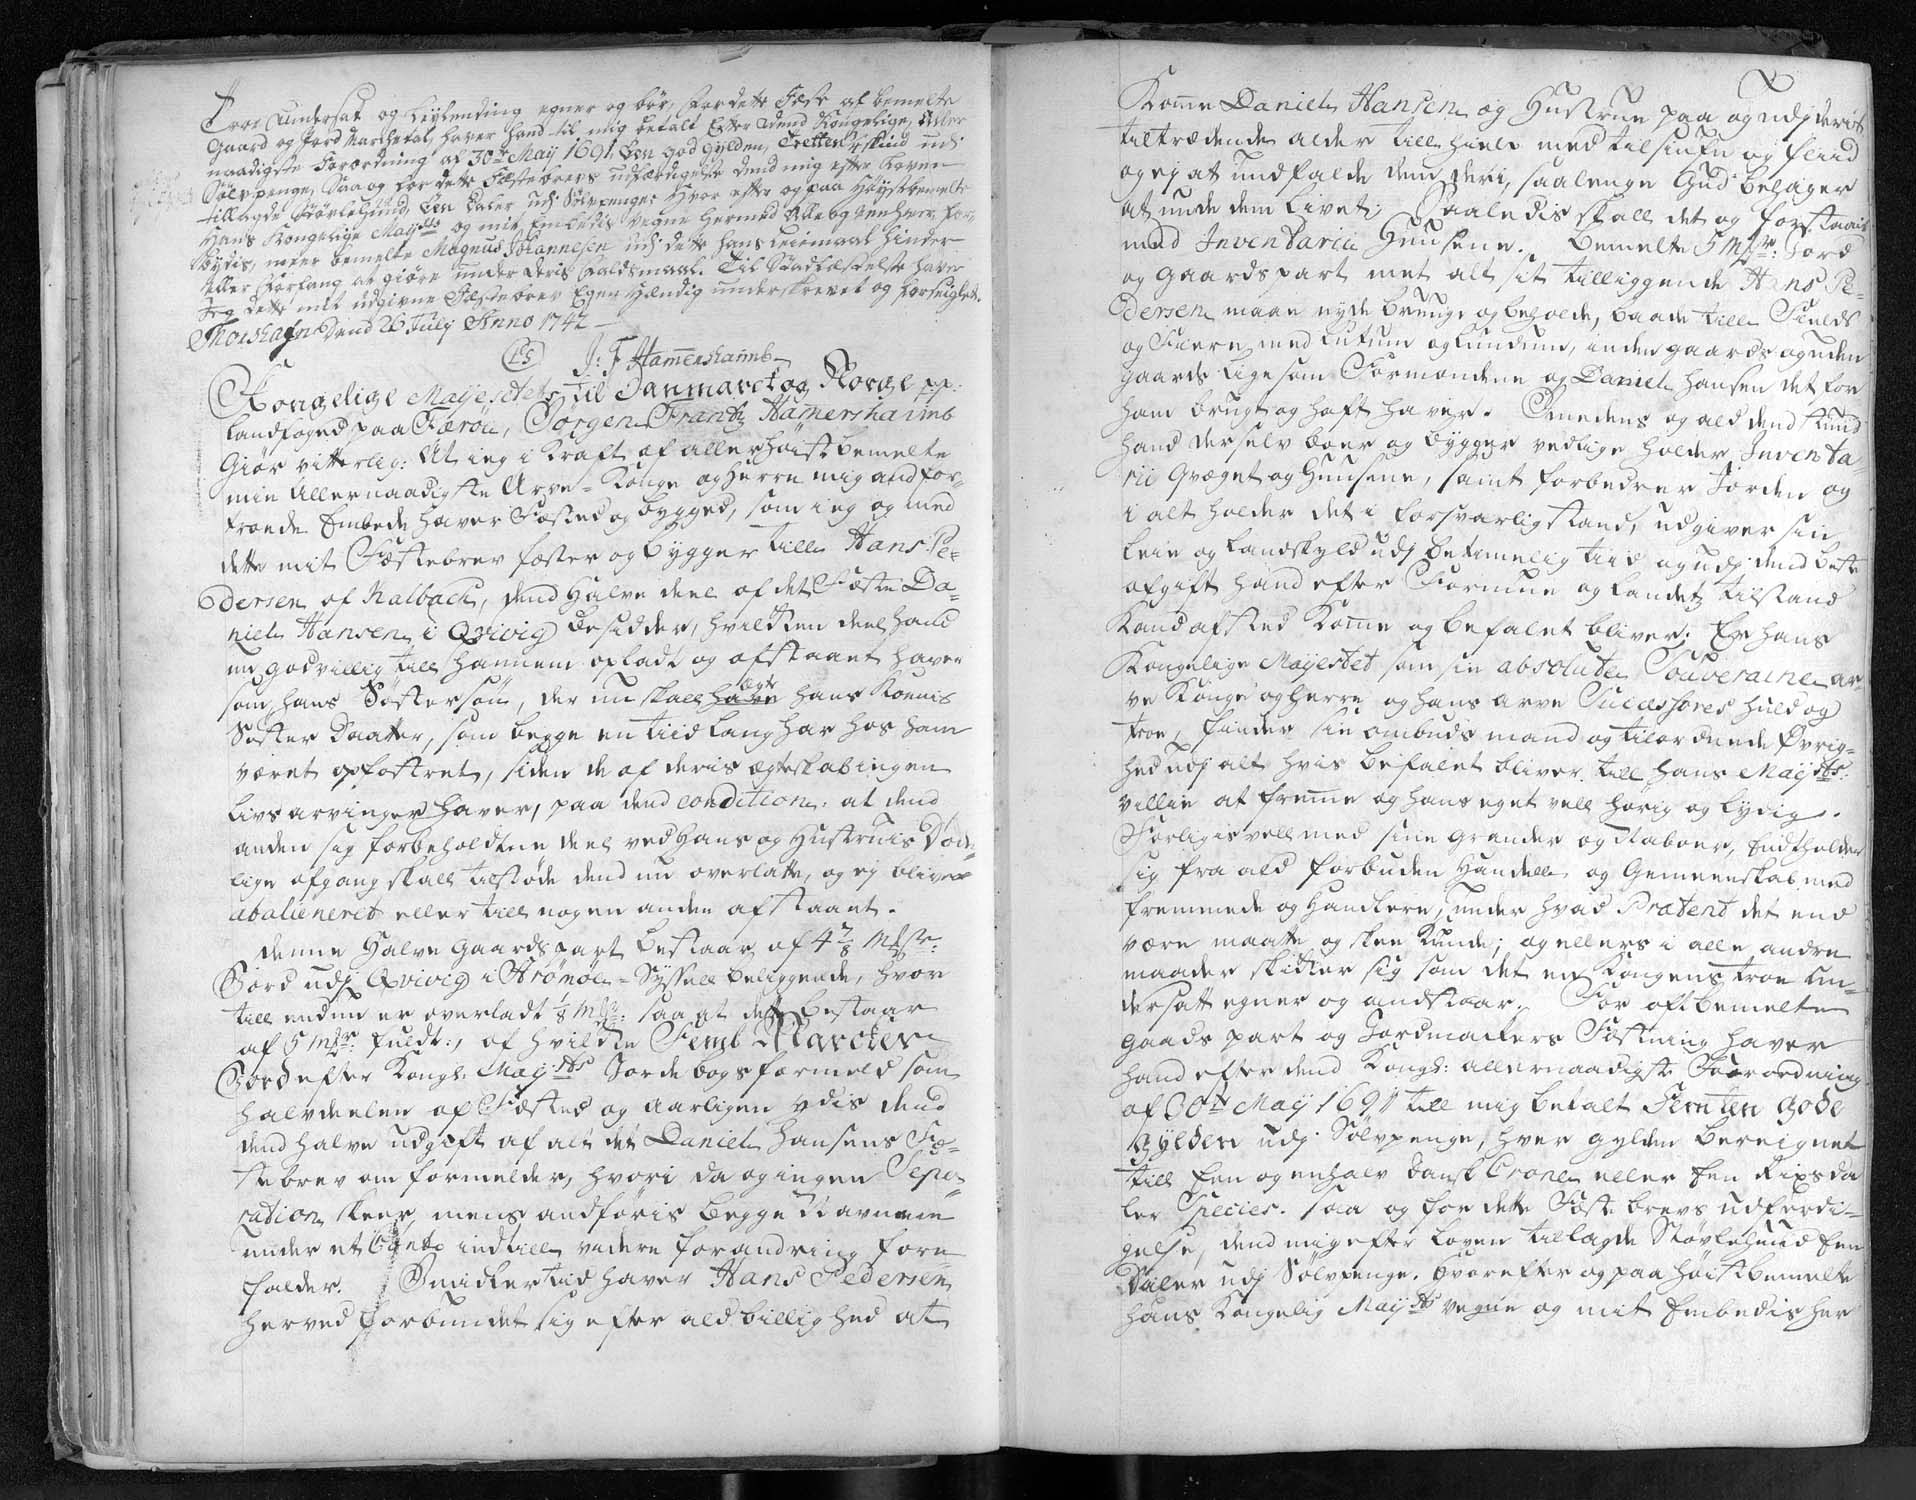 Troe Undersat og Leylending egner og bör, for dette Fæste af bemelte
Gaard og Jord Marchetal, haver hand til mig betalt Efter Dend Kongelige, Aller
naadigste Forordning af 30te Maÿ 1691, Een god Gylden, Tretten skind udi
Sölvpenge, Saa og for dette Fæstebrevs udfærdigelse dend mig efter Loven
tillagde Störlehund, Een Daler udi Sölvpenge: Hvor efter og paa Höystbemelte
Hans Kongelige Mayts og mit Embedis vegne hermed Alle og Enhver for
bÿdis, meer bemelte Magnus Johannesen udi dette hans leiemaal Hinder
Eller Forfang at giöre under Deris Faldsmaal. Til Stadfæstelse haver
Jeg dette mit udgivne Fæstebrev Egenhændig underskrevet og forseiglet.
Thorshafn Dend 26 Julÿ Anno 1742
LS J: F Hamershaimb
Kongelige Mayestets til Danmarck og Norge pp:
Landfoged paa Færöe, Jörgen Frantz Hamershaimb
Giör vitterlig: At ieg i Kraft af allerhöist bemelte
min Allernaadigste Arve-Konge og Herre mig anfor-
troede Embede haver Fæsted og bygged, som ieg og med
dette mit Fæstebrev fæster og bygger till Hans Pe-
dersen af Kalbach, dend Halve deel af det Fæste Da-
niel Hansen i Qvivig besidder, hvilken deel hand
nu godvillig till hannem opladt og afstaaet haver
som hans Söstersön, der nu skall have ægte hans Konnis
Söster Daatter, som begge en tiid lang har hos ham
været opfostret, siden de af deris ægteskab ingen
livs arvinger haver, paa dend condition: at dend
anden sig forbeholdene deel ved hans og Hustruis Döde-
lige afgang skall tilstöde dend nu overlatte, og ej blive
abalieneret eller till nogen anden afstaaet.
denne Halve gaards part bestaar af 4 7/8 Mrkr:
Jord udj Qvivig i Strömöe-Syssell beliggende, hvor
till endnu er overladt 1/8 Mrk: saa at det bestaar
af 5 Mrkr: fuldt:, af hvilke Femb Marcker
Jord efter Kongl: Mayts Jordebogs formeld som
halvdeelen af Fæsted og aarligen ydis dend
dend halve udgift af alt det Daniel Hansens Fæ-
stebrev om formelder, hvori da og ingen Sepa-
ration skeer, mens andföris begge Navnene
under et indtill videre forandring fore-
falder. Imidlertiid haver Hans Pedersen
herved forbundet sig efter ald billighed at
Komme Daniel Hansen og Hustrue paa og udj deris
tiltrædende alder till hielp med tilsiufn og fliid
og ej at undfalde dem deri, saalenge Gud behager
at unde dem livet; Saaledis skall det og forstaais
med Inventarii Huusene. Bemelte 5 Mrkr: Jord
og gaards part met alt sit tilliggende Hans Pe-
dersen maae nyde bruuge og beholde, baade till Fields
og Fiere, med Lutum og Lundum, inden gaards og uden
gaards lige som Formændene og Daniel Hansen det for
ham brugt og haft haver. Imedens og ald dend stund
hand der selv boer og bygger vedlige holder Inventa-
rii Qvæget og Huusene, samt forbedrer Jorden og
i alt holder det i forsvarlig stand, udgiver sin
leie og Landskyld udj betimmelig tiid og udj dend beste
afgift hand efter Formue og Landets tilstand
Kand afsted Komme og befalet bliver; Er hans
Kongelige Mayestet som sin absolute Souveraine ar-
ve Konge og herre og hans arve Successores huld og
troe, finder sin ombuds mand og tilordnede Övrig-
hed udj alt hvis befalet bliver till hans Mayts:
villie at fremme og hans eget vell hörig og lydig.
Forligis vell med sine grander og Naboer, Endtholder
sig fra ald forbuden Handell og Gemeenskab med
fremmede og Handlere, under hvad Prætent det end
være maatte og skee Kunde; og ellers i alle andre
maader skicker sig som det en Kongens troe un-
dersatt egner og anstaar. For oftbemelte
gaards part og Jordmarkers Fæstning haver
hand efter dend Kongl: allernaadigste Forordning
af 30te Maÿ 1691 till mig betalt Femten gode
Gylden udj Sölvpenge, hver gylden bereignet
till Een og en halv dansk Crone eller Een Rixsda
ler Specier. saa og for dette Fæste brevs udferdi-
gelse, dend mig efter Loven tillagde Stövlehund Een
Daler udj Sölvpenge. Hvorefter og paa höistbemelte
hans Kongelig Mayts vegne og mit Embedis her